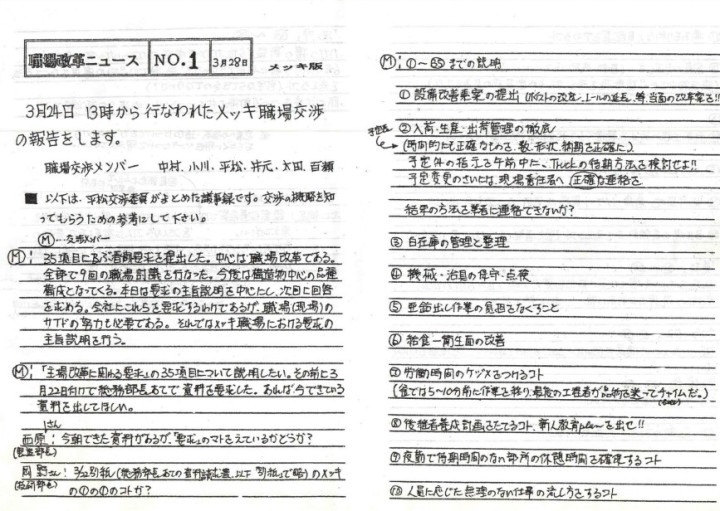 職場改革ニュース NO.1 3月28日 メッキ版
3月24日 13時から行なわれたメッキ職場交渉
の報告をします。
職場交渉メンバー 中村、小川、平松、井元、太田、百瀬
■ 以下は、平松交渉委員がまとめた議事録です。交渉の概略を知
ってもらうための参考にして下さい。
Ⓜ…交渉メンバー
Ⓜ: 35項目に及ぶ春闘要求を提出した。中心は職場改革である。
全部で9回の職場討議を行なった。今度は構造物中心の品種
構成となってくる。本日は要求の主旨説明を中心にし、次回に回答
を求める。会社にこれらを要求するわけであるが、職場(現場)の
サイドの努力も必要である。それではメッキ職場における要求の
主旨説明を行う。
Ⓜ: 「主場改革に関わる要求」の35項目について説明したい。その前に3
月22日付けで総務部長あてで資料を要求した。あれば今できている
資料を出してほしい。
西原さん: 今朝できた資料があるが、要求のマトをえているかどうか?
岡野さん: 3/22別紙(総務部長あての資料請求書、以下「別紙」で略)のメッキ
の①の①のコトか?
Ⓜ: ①〜㉟までの説明
① 設備改善要案の提出
② 入荷・生産・出荷管理の徹底
(時間的にも正確なものを、数、形状、納期を正確に)
予定外の指示を午前中に、Truckの待期方法を検討せよ!!
予定変更のさいには、現場責任者へ正確な連絡を
結果の方法を業者に連絡できないか?
③ 白在庫の管理と整理
④ 機械・治具の保守・点検
⑤ 亜鉛出し作業の負担をなくすこと
⑥ 給食−衛生面の改善
⑦ 労働時間のケジメをつけるコト
(雀では5〜10分前に作業を終り、最後の工程者が品物を送ってチャイムだ。)
⑧ 後継者養成計画をたてるコト、新人教育planを出せ!!
⑨ 夜勤で待期時間のない部所の休憩時間を確保するコト
⑩ 人員に応じた無理のない仕事の流し方をするコト